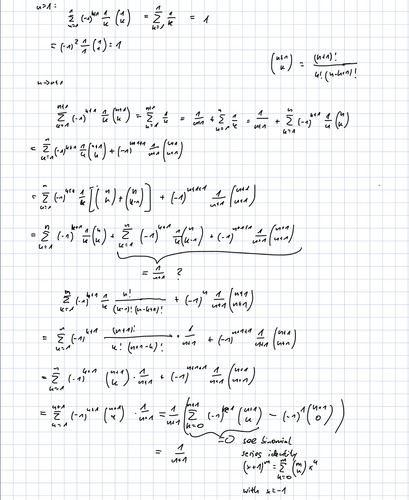 n=1: \sum_{k=1}^{n} (-1)^{k+1} \frac{1}{k} \binom{1}{k} = \sum_{k=1}^{1} \frac{1}{k} = 1
= (-1)^2 \frac{1}{1} \binom{1}{1} = 1
\binom{n+1}{k} = \frac{(n+1)!}{k!(n-k+1)!}
n→n+1
\sum_{k=1}^{n+1} (-1)^{k+1} \frac{1}{k} \binom{n+1}{k} = \sum_{k=1}^{n+1} \frac{1}{k} = \frac{1}{n+1} + \sum_{k=1}^{n} \frac{1}{k} = \frac{1}{n+1} + \sum_{k=1}^{n} (-1)^{k+1} \frac{1}{k} \binom{n}{k}
= \sum_{k=1}^{n} (-1)^{k+1} \frac{1}{k} \binom{n+1}{k} + (-1)^{n+2} \frac{1}{n+1} \binom{n+1}{n+1}
= \sum_{k=1}^{n} (-1)^{k+1} \frac{1}{k} [\binom{n}{k} + \binom{n}{k-1}] + (-1)^{n+1+1} \frac{1}{n+1} \binom{n+1}{n+1}
= \sum_{k=1}^{n} (-1)^{k+1} \frac{1}{k} \binom{n}{k} + \sum_{k=1}^{n} (-1)^{k+1} \frac{1}{k} \binom{n}{k-1} + (-1)^{n+1+1} \frac{1}{n+1} \binom{n+1}{n+1}
= \frac{1}{n+1} ?
\sum_{k=1}^{n} (-1)^{k+1} \frac{1}{k} \frac{n!}{(k-1)!(n-k+1)!} + (-1)^{n} \frac{1}{n+1} \binom{n+1}{n+1}
= \sum_{k=1}^{n} (-1)^{k+1} \frac{(n+1)!}{k!(n+1-k)!} \cdot \frac{1}{n+1} + (-1)^{n+1+1} \frac{1}{n+1} \binom{n+1}{n+1}
= \sum_{k=1}^{n} (-1)^{k+1} \binom{n+1}{k} \cdot \frac{1}{n+1} + (-1)^{n+1+1} \frac{1}{n+1} \binom{n+1}{n+1}
= \sum_{k=1}^{n+1} (-1)^{k+1} \binom{n+1}{k} \cdot \frac{1}{n+1} = \frac{1}{n+1} ( \sum_{k=0}^{n+1} (-1)^{k+1} \binom{n+1}{k} - (-1)^{1} \binom{n+1}{0} )
=0 see binomial
= \frac{1}{n+1} series identity
(x+1)^m = \sum_{k=0}^{m} \binom{m}{k} x^k
with x=-1